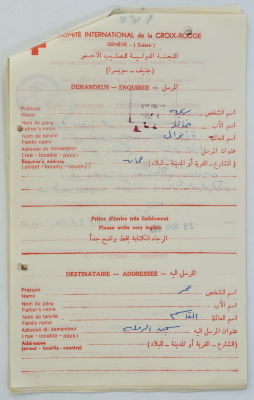 COMITÉ INTERNATIONAL de la CROIX-ROUGE
GENÈVE - (Suisse)
اللجنة الدولية للصليب الأحمر
(جنيف - سويسرا)
DEMANDEUR — ENQUIRER — المرسل
Prénom
Name اسم الشخص
Nom du père
Father's name اسم الأب
Nom de famille
Family name اسم العائلة
Adresse du demandeur عنوان المرسل
(rue - localité - pays)
Enquirer address عمان (الشارع - القرية أو المدينة - البلاد)
(street - locality - country)
Prière d'écrire très lisiblement
Please write very legibly
الرجاء الكتابة بخط واضح جداً
DESTINATAIRE — ADDRESSEE — المرسل اليه
Prénom
Name اسم الشخص عمر
Nom du père
Father's name اسم الأب
Nom de famille
Family name اسم العائلة القاسم
Adresse du demandeur عنوان المرسل اليه سجن الرملة
(rue - localité - pays)
Addressee (الشارع - القرية أو المدينة - البلاد)
(street - locality - country)